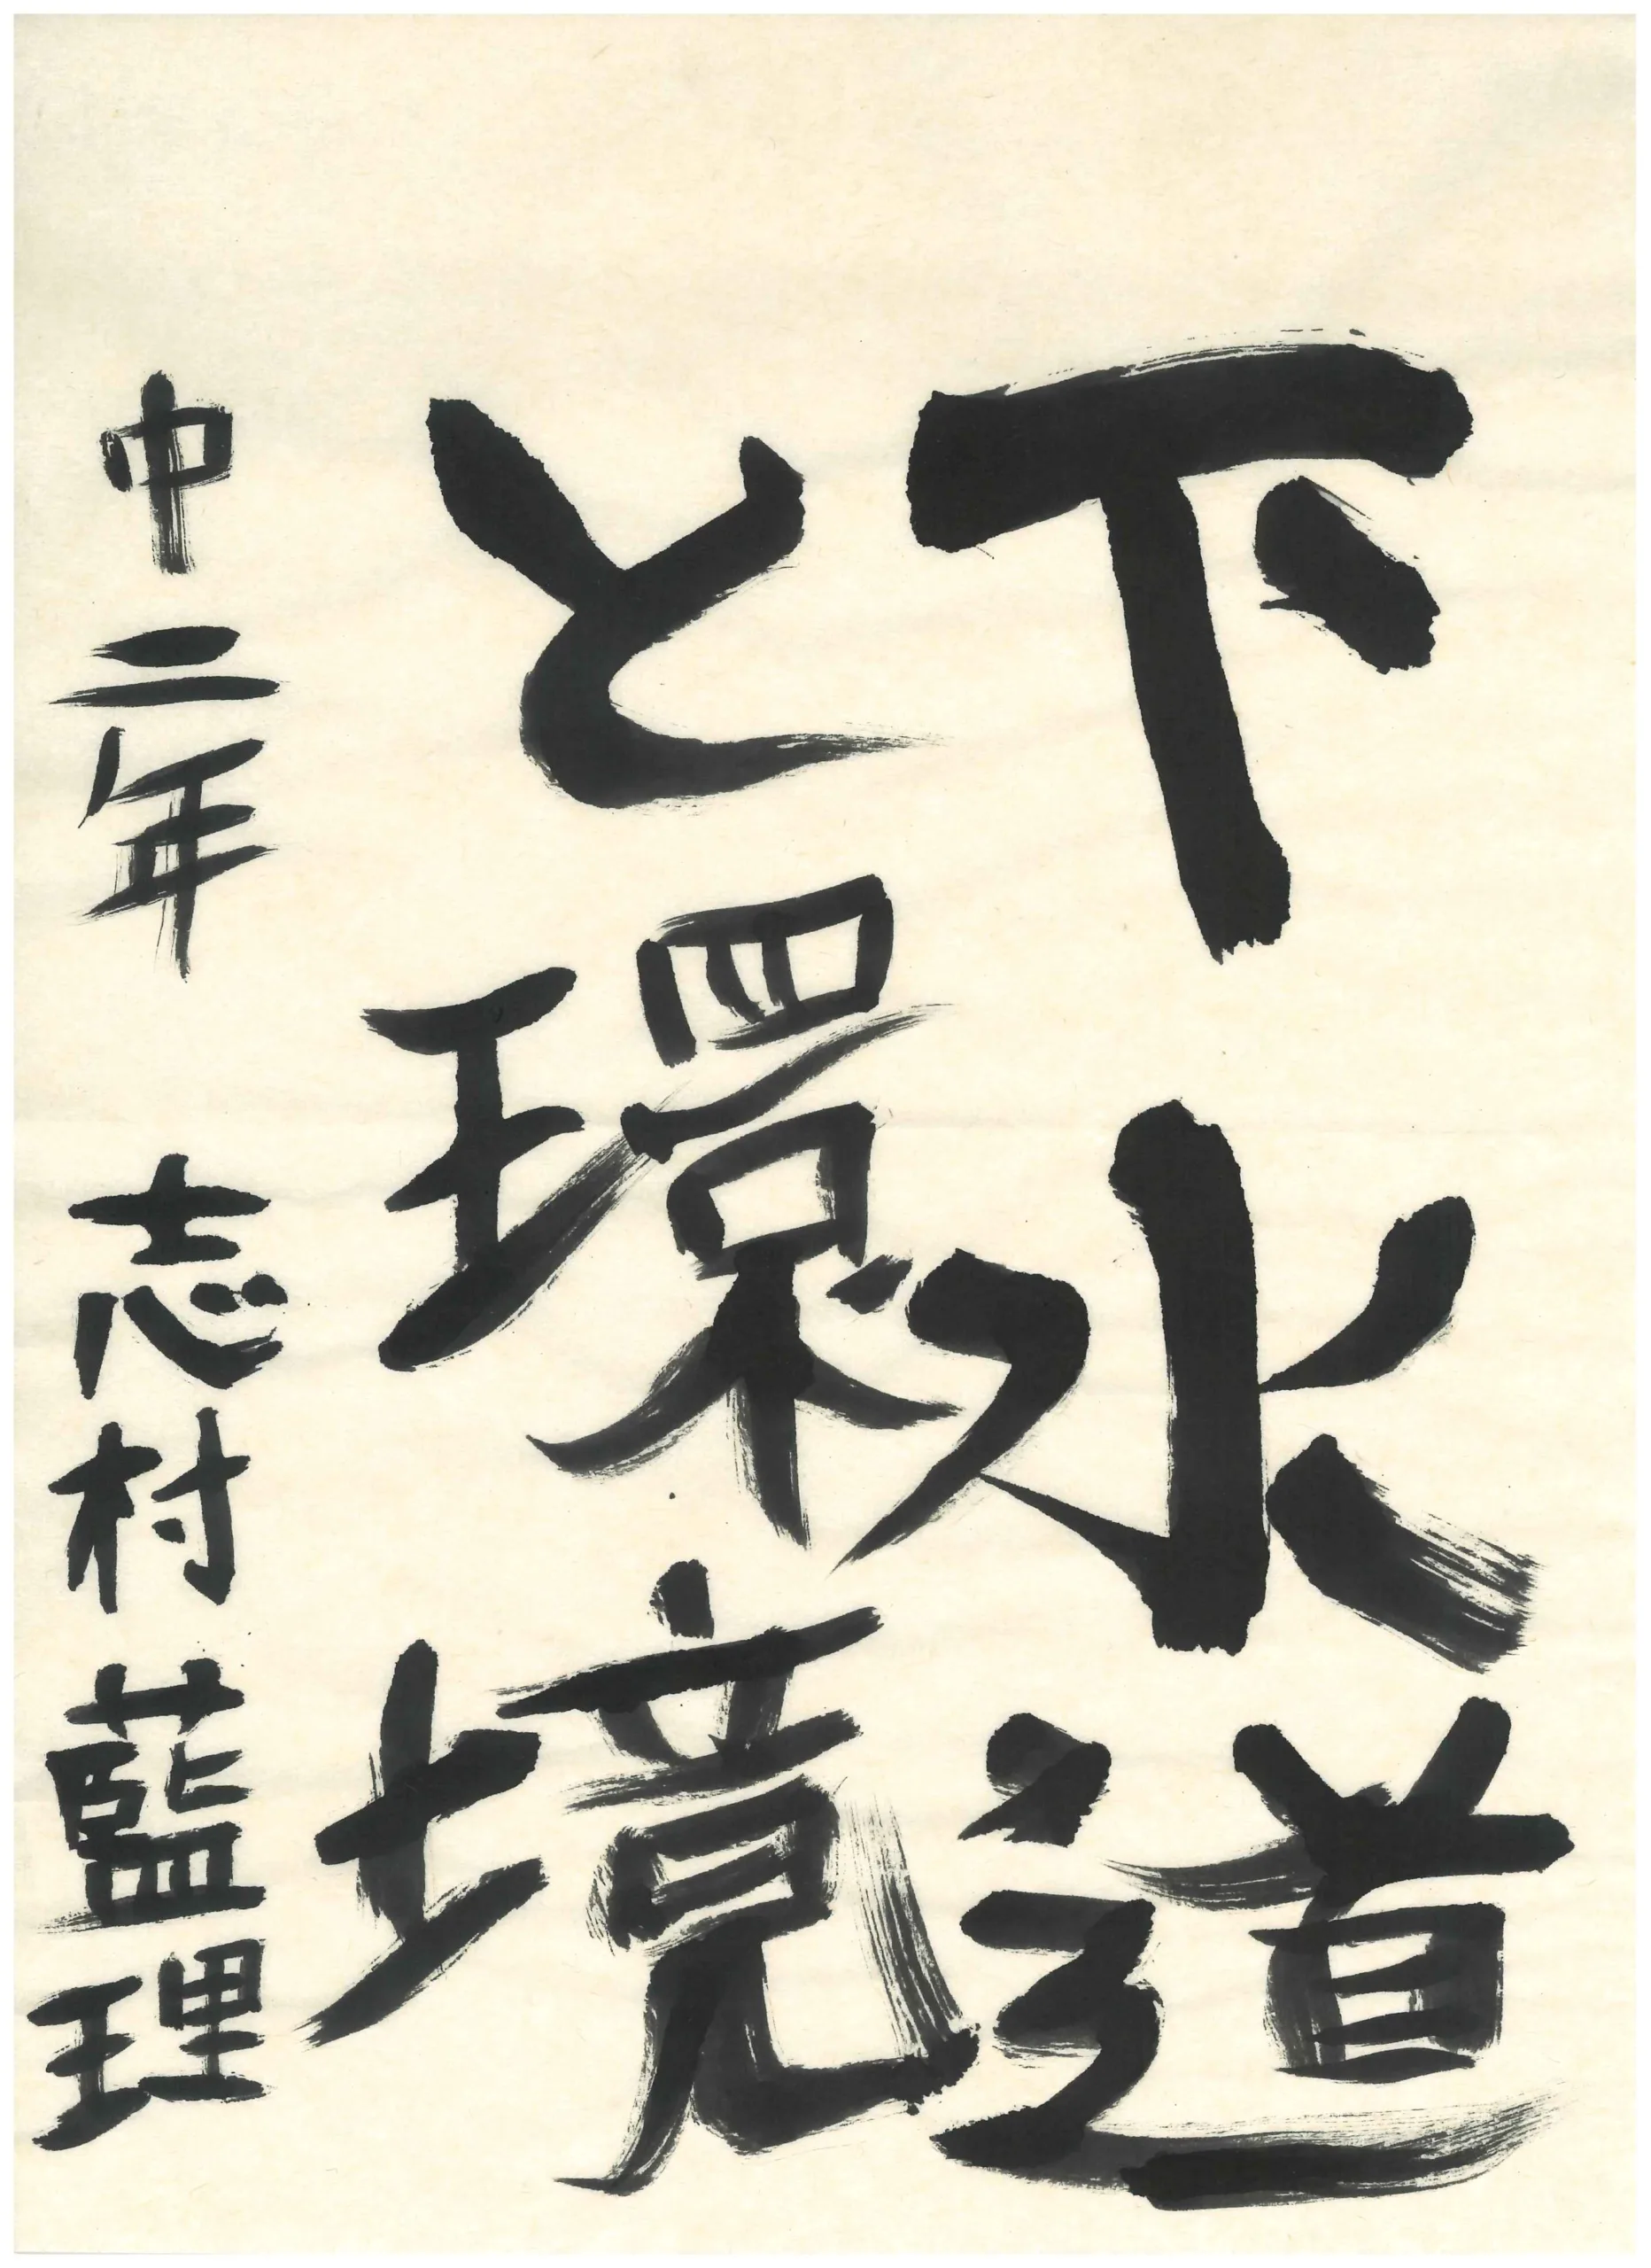 下水道
と環境
中二年 志村藍理